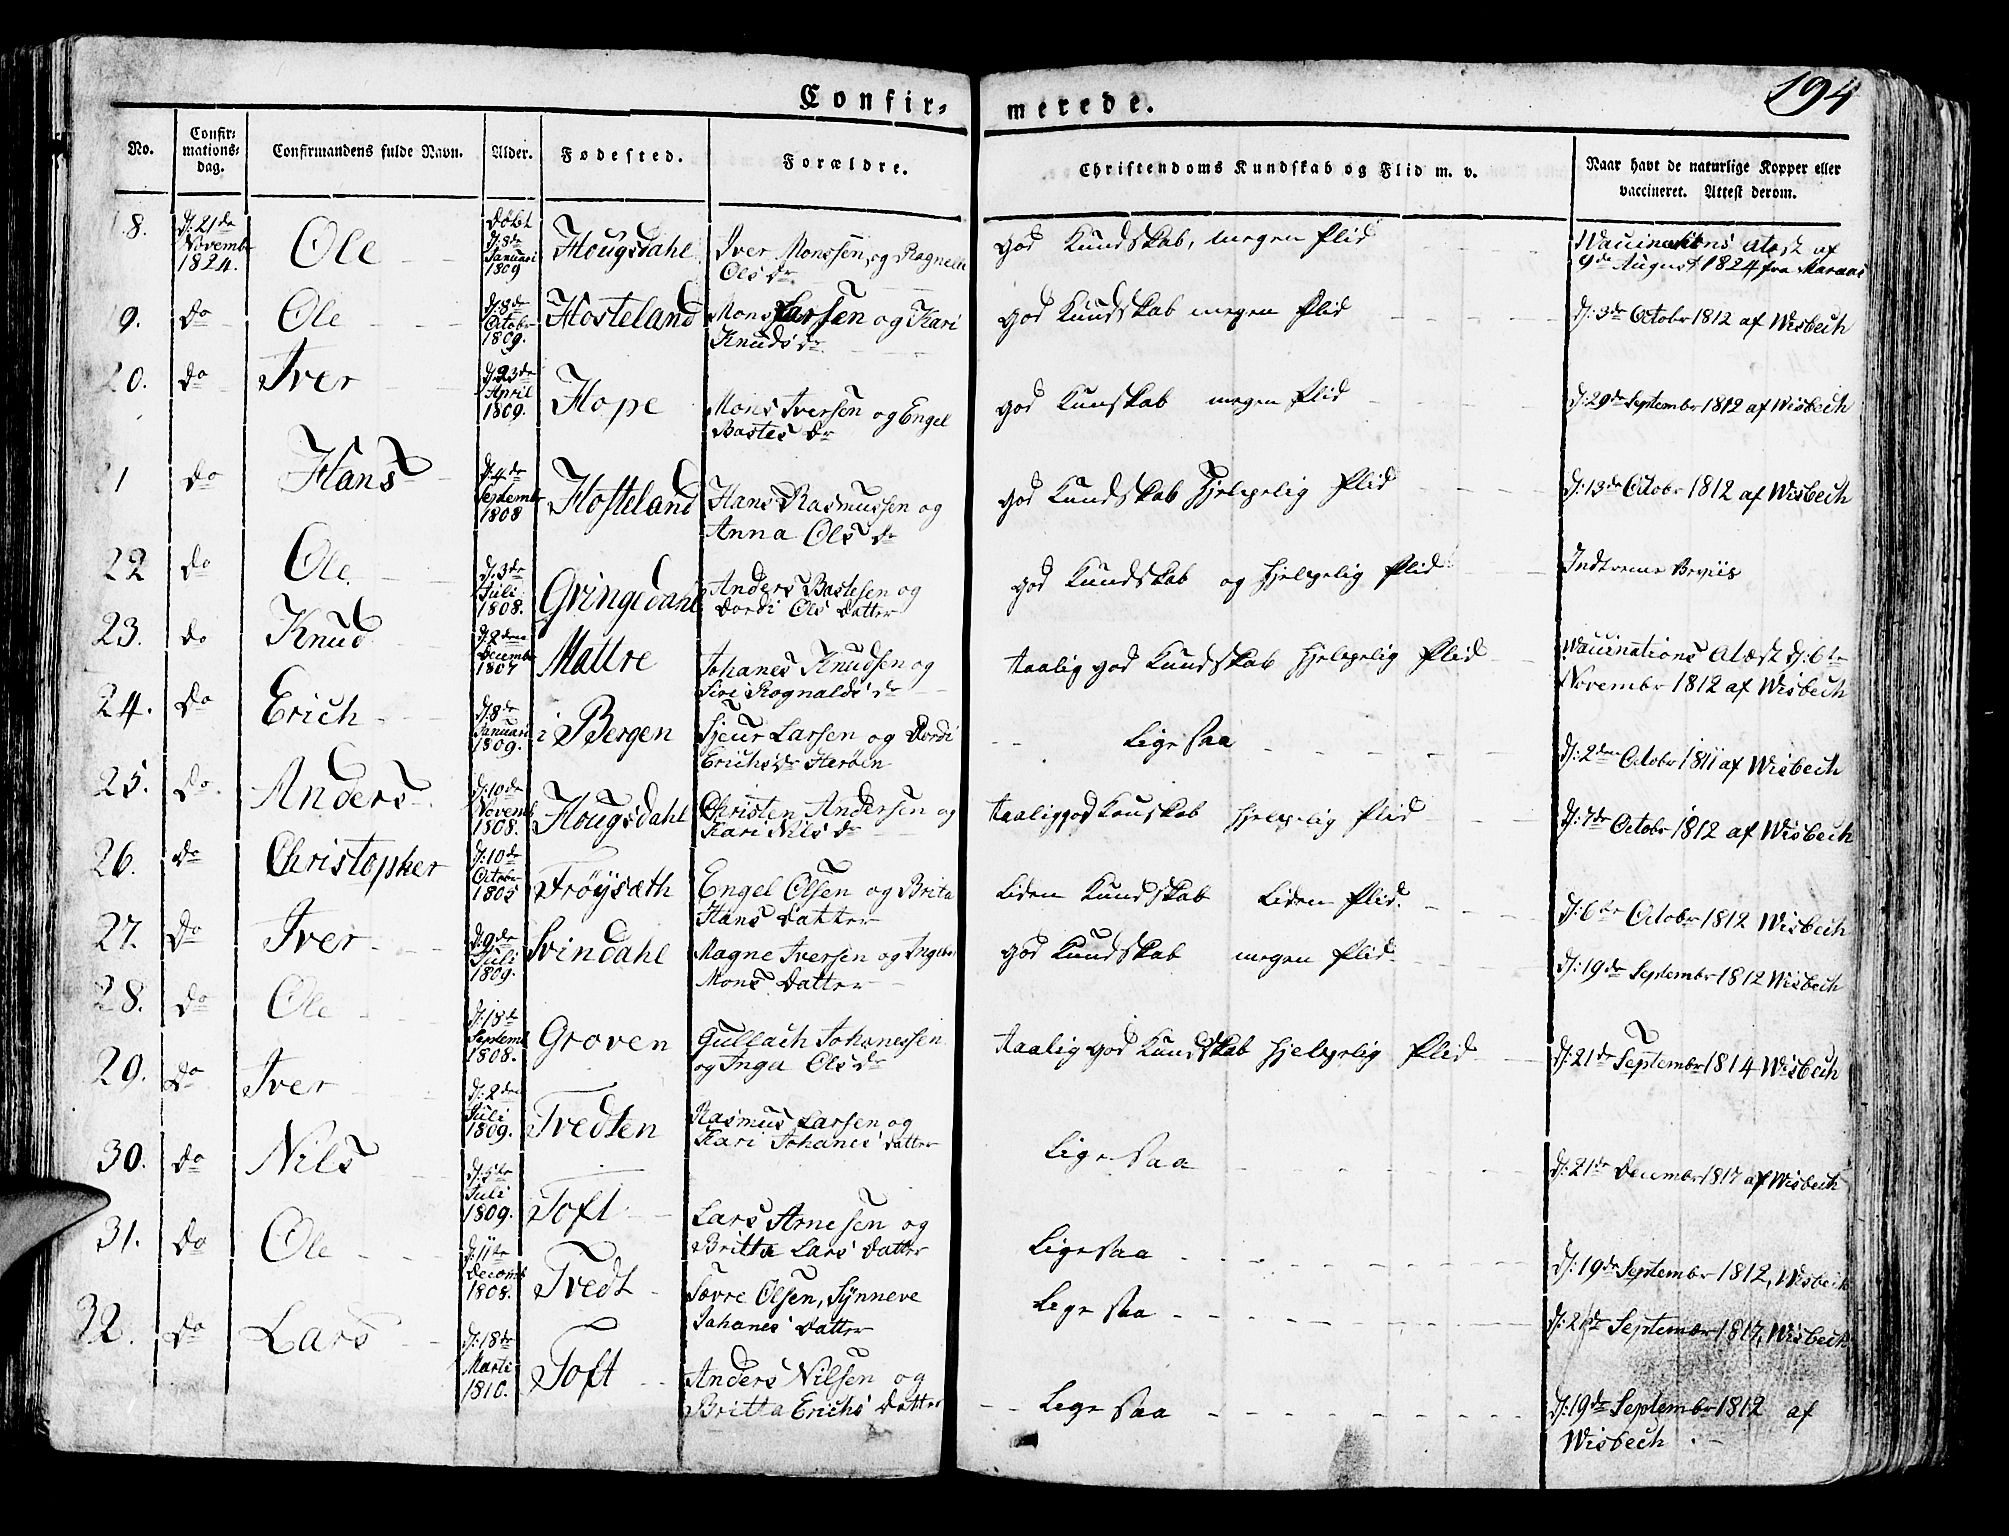 194
Confir- merede.
No. Confir- mations- dag. Confirmandens fulde Navn. Alder. Fødested. Forældre. Christendoms Kundskab og Flid m. v. Naar havt de naturlige Kopper eller vaccineret. Attest derom.
18. D: 21de Novembr 1824. Ole Døbt D: 8de Januari 1809 Hougsdahl Iver Monssen, og Ragnele Ols dr god Kundskab, megen flid Waccinations Atest af 9de August 1824 fra
9. do Ole D: 8de Octobr 1809. Hosteland Mons Larsen og Kari Knuds dr god Kundskab megen flid D: 3de Octobr 1812 af Wisbech
20. do Iver D: 23de April 1809. Hope Mons Iversen og Engel Bastes dr god Kunskab megen flid D: 29de Septembr 1812 af Wisbech
21 do Hans D: 4de Septembr 1808 Hosteland Hans Rasmussen og Anna Ols dr god Kundskab Hjelpelig flid D: 13de Octobr 1812 af Wisbech
22 do Ole D: 3de Juli 1808. Gringedahl Anders Bastesen og Dordi Ols Datter god Kundskab og Hjelpelig flid Beviis
23. do Knud D: 2den Decembr 1807 Mattre Johanes Knudsen og Siri Rognalds' dr taalig god Kundskab Hjelpelig flid Waccinations Atæst D: 6te Novembr 1812 af Wisbech
24. do Erich D: 8de Januari 1809. i Bergen Sjeur Larsen og Dordi Erichs dr Herøen Lige saa D: 2den Octobr 1811 af Wisbech
25. do. Anders D: 10de Novemb 1808. Hougsdahl Christen Andersen og Kari Nils dr taalig god Kunskab Hjelpelig flid D: 7de Octobr 1812 af Wisbech
26. do Christopher D: 10de Octobr 1805 Frøysæth Engel Olsen og Brita Hans Datter Liden Kundskab Liden flid. D: 6te Octobr 1812 Wisbech
27. do Iver D: 9de Juli 1809. Svindahl Magne Iversen og Ingebr Mons Datter god Kundskab megen flid D: 19de Septembr 1812 Wisbech
28. do Ole D: 18de Septemb 1808. Groven Gullach Johanessen og Inga Ols dr taalig god Kundskab Hjelpelig flid D: 21de Septembr 1814 Wisbech
29. do Iver D: 2den Juli 1809. Tredten Rasmus Larsen og Kari Johanes' Datter Lige saa D: 21de Decembr 1817 af Wisbech
30. do Nils D: 5te Juli 1809. Toft Lars Arnesen og Britta Lars' Datter Lige saa D: 19de Septembr 1812, Wisbech
31. do Ole D: 11te Decemb 1808. Tredt Sævre Olsen, Synneve Johanes' Datter Lige saa D: 21de Septembr 1817, Wisbech
32. do Lars D: 18de Marti 1810. Toft Anders Nilsen og Britta Erichs' Datter Lige saa D: 19de Septembr 1812 af Wisbech